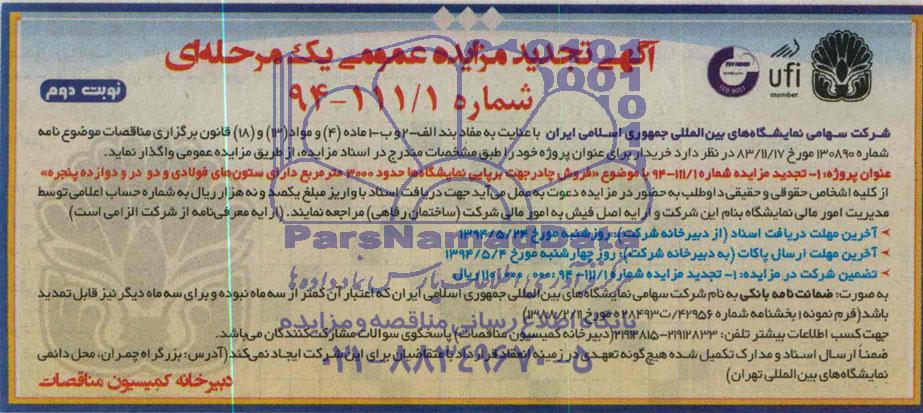 آگهی تجدید مزایده عمومی یک مرحله‌ای
شماره ۹۴-۱۱۱/۱
نوبت دوم
ufi
member
ISO 9001
شرکت سهامی نمایشگاه‌های بین‌المللی جمهوری اسلامی ایران با عنایت به مفاد بند الف-۲ و ب-۱ ماده (۴) و مواد (۱۳) و (۱۸) قانون برگزاری مناقصات موضوع نامه
شماره ۱۳۰۸۹۰ مورخ ۸۳/۱۱/۱۷ در نظر دارد خریدار برای عنوان پروژه خود را طبق مشخصات مندرج در اسناد مزایده، از طریق مزایده عمومی واگذار نماید.
عنوان پروژه: ۱- تجدید مزایده شماره ۹۴-۱۱۱/۱ با موضوع «فروش چادر جهت برپایی نمایشگاه‌ها حدود ۳۰۰۰ متر مربع دارای ستون‌های فولادی و دو در و دوازده پنجره»
از کلیه اشخاص حقوقی و حقیقی داوطلب به حضور در مزایده دعوت به عمل می‌آید جهت دریافت اسناد با واریز مبلغ یکصد و نه هزار ریال به شماره حساب اعلامی توسط
مدیریت امور مالی نمایشگاه بنام این شرکت و ارایه اصل فیش به امور مالی شرکت (ساختمان رفاهی) مراجعه نمایند. (ارایه معرفی‌نامه از شرکت الزامی است)
آخرین مهلت دریافت اسناد (از دبیرخانه شرکت): روز شنبه مورخ ۱۳۹۴/۵/۲۴
آخرین مهلت ارسال پاکات (به دبیرخانه شرکت): روز چهارشنبه مورخ ۱۳۹۴/۵/۴
تضمین شرکت در مزایده: ۱- تجدید مزایده شماره ۹۴-۱۱۱/۱: ریال
به صورت: ضمانت نامه بانکی به نام شرکت سهامی نمایشگاه‌های بین‌المللی جمهوری اسلامی ایران که اعتبار آن کمتر از سه ماه نبوده و برای سه ماه دیگر نیز قابل تمدید
باشد (فرم نمونه ۱ بخشنامه شماره ۴۲۹۵۶/ت۲۸۴۹۳ه مورخ ۱۳۸۲/۸/۱۱)
جهت کسب اطلاعات بیشتر تلفن: ۲۱۹۱۲۸۳۳-۲۱۹۱۳۸۱۵ (دبیرخانه کمیسیون مناقصات) پاسخگوی سوالات مشارکت‌کنندگان می‌باشد.
ضمناً ارسال اسناد و مدارک تکمیل شده هیچ‌گونه تعهدی در زمینه انعقاد قرارداد با متقاضیان برای این شرکت ایجاد نمی‌کند (آدرس: بزرگراه چمران، محل دائمی
نمایشگاه‌های بین‌المللی تهران)
دبیرخانه کمیسیون مناقصات
ParsNamadData
مرکز فرآوری اطلاعات پارس نماد داده ها
پایگاه اطلاع رسانی مناقصه و مزایده
۰۲۱-۸۸۳۴۹۶۷۰-۵